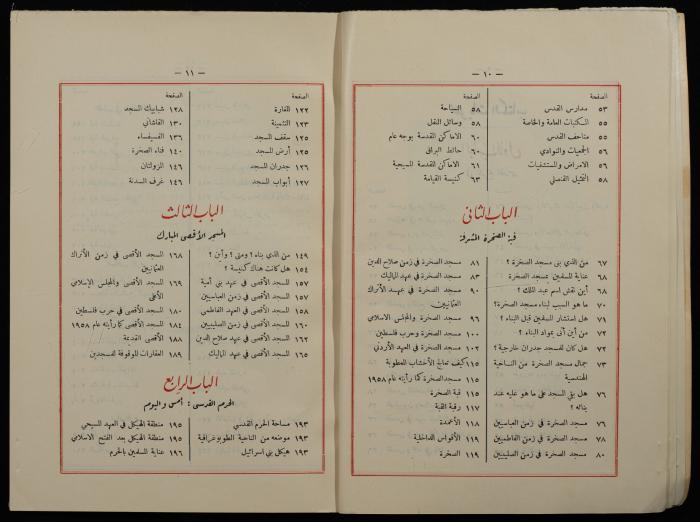 — ١٠ —
الصفحة
٥٣ مدارس القدس
٥٥ المكتبات العامة والخاصة
٥٥ متاحف القدس
٥٦ الجمعيات والنوادي
٥٦ الامراض والمستشفيات
٥٨ التمثيل القنصلي
الصفحة
٥٨ السياحة
٥٨ وسائل النقل
٦٠ الاماكن المقدسة بوجه عام
٦٠ حائط البراق
٦١ الاماكن المقدسة المسيحية
٦٣ كنيسة القيامة
الباب الثاني
قبة الصخرة المشرفة
٦٧ من الذي بنى مسجد الصخرة ؟
٦٨ عناية المسلمين بمسجد الصخرة
٦٨ أين نقش اسم عبد الملك ؟
٧٠ ما هو السبب لبناء مسجد الصخرة؟
٧١ هل استشار المسلمين قبل البناء ؟
٧٢ من أين أتى بمواد البناء ؟
٧٢ هل كان للمسجد جدران خارجية ؟
٧٣ جمال مسجد الصخرة من الناحية
الهندسية
٧٦ هل بقي المسجد على ما هو عليه عند
بنائه ؟
٧٦ مسجد الصخرة في زمن العباسيين
٧٨ مسجد الصخرة في زمن الفاطميين
٨٠ مسجد الصخرة في زمن الصليبيين
٨١ مسجد الصخرة في زمن صلاح الدين
٨٣ مسجد الصخرة في عهد المماليك
٩٠ مسجد الصخرة في عهد الأتراك
العثمانيين
٩٦ مسجد الصخرة والمجلس الاسلامي
١٠٠ مسجد الصخرة وحرب فلسطين
١٠٢ مسجد الصخرة في العهد الأردني
١١٠ كيف تعالج الأخشاب المعطوبة
١١٥ مسجد الصخرة كما رأيته عام ١٩٥٨
١١٥ قبة الصخرة
١١٧ رقبة القبة
١١٨ الأعمدة
١١٩ الأقواس الداخلية
١١٩ الصخرة
— ١١ —
الصفحة
١٢٢ المغارة
١٢٣ التثمينة
١٢٥ سقف المسجد
١٢٥ أرض المسجد
١٢٦ جدران المسجد
١٢٧ أبواب المسجد
الصفحة
١٢٨ شبابيك المسجد
١٣٠ القاشاني
١٣٦ الفسيفساء
١٤٠ فناء الصخرة
١٤٦ المزولتان
١٤٦ غرف السدنة
الباب الثالث
المسجد الأقصى المبارك
١٤٩ من الذي بناه ؟ ومتى ؟ وأين ؟
١٥٤ هل كانت هناك كنيسة ؟
١٥٧ المسجد الأقصى في عهد بني أمية
١٥٧ المسجد الأقصى في زمن العباسيين
١٥٨ المسجد الأقصى في العهد الفاطمي
١٦٠ المسجد الأقصى في زمن الصليبيين
١٦٢ المسجد الأقصى في عهد صلاح الدين
١٦٥ المسجد الأقصى في عهد المماليك
١٦٨ المسجد الأقصى في زمن الأتراك
العثمانيين
١٦٩ المسجد الأقصى والمجلس الإسلامي
الأعلى
١٨٠ المسجد الأقصى في حرب فلسطين
١٨٤ المسجد الأقصى كما رأيته عام ١٩٥٨
١٨٨ الأقصى القديمة
١٨٩ العقارات الموقوفة للمسجدين
الباب الرابع
الحرم القدسي : أمس واليوم
١٩٣ مساحة الحرم القدسي
١٩٣ موضعه من الناحية الطوبوغرافية
١٩٣ هيكل بني اسرائيل
١٩٥ منطقة الهيكل في العهد المسيحي
١٩٥ منطقة الهيكل بعد الفتح الاسلامي
١٩٦ عناية المسلمين بالحرم